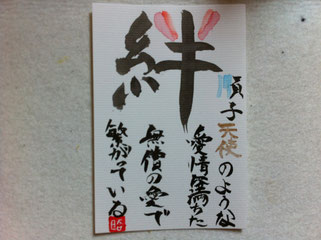 絆
順子天使のような
愛情満ちた
無償の愛で
繋がっている